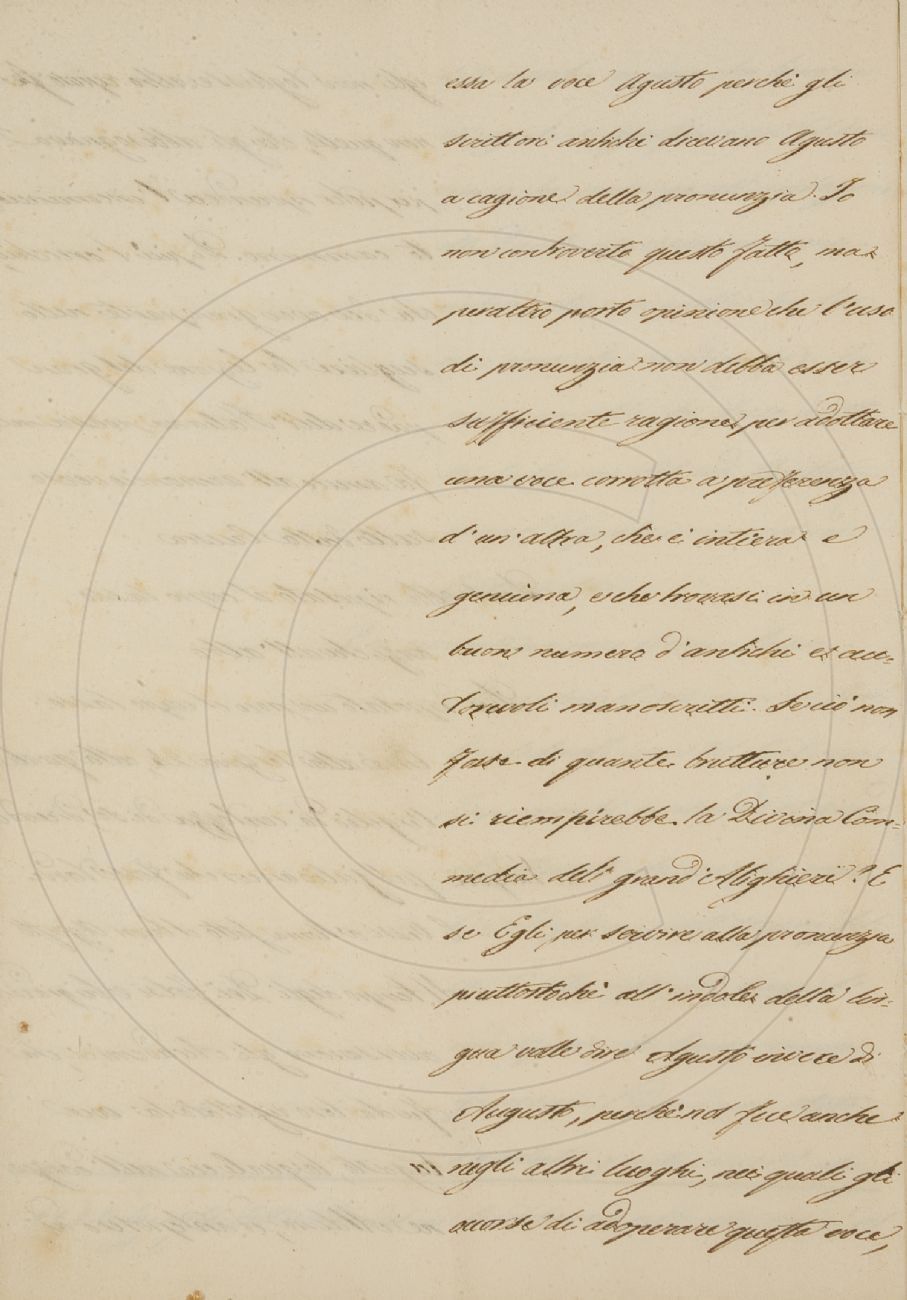 essa la voce Agusto, perchè gli
scrittori antichi dicevano Agusto
a cagione della pronunzia. Io
non controverto questo fatto, ma
peraltro porto opinione che l'uso
di pronunzia non debba esser
sufficiente ragione per adottare
una voce corrotta a preferenza
d'un'altra, che è intiera e
genuina, e che trovasi in un
buon numero d'antichi et au-
torevoli manoscritti. Se ciò non
fosse di quante brutture non
si riempirebbe la Divina Com-
media del grand'Alighieri? E
se Egli per servire alla pronunzia
piuttostochè all'indole della lin-
gua volle dire Agusto invece di
Augusto, perchè nol fece anche
in negli altri luoghi, nei quali gli
occorse di adoperare questa voce,